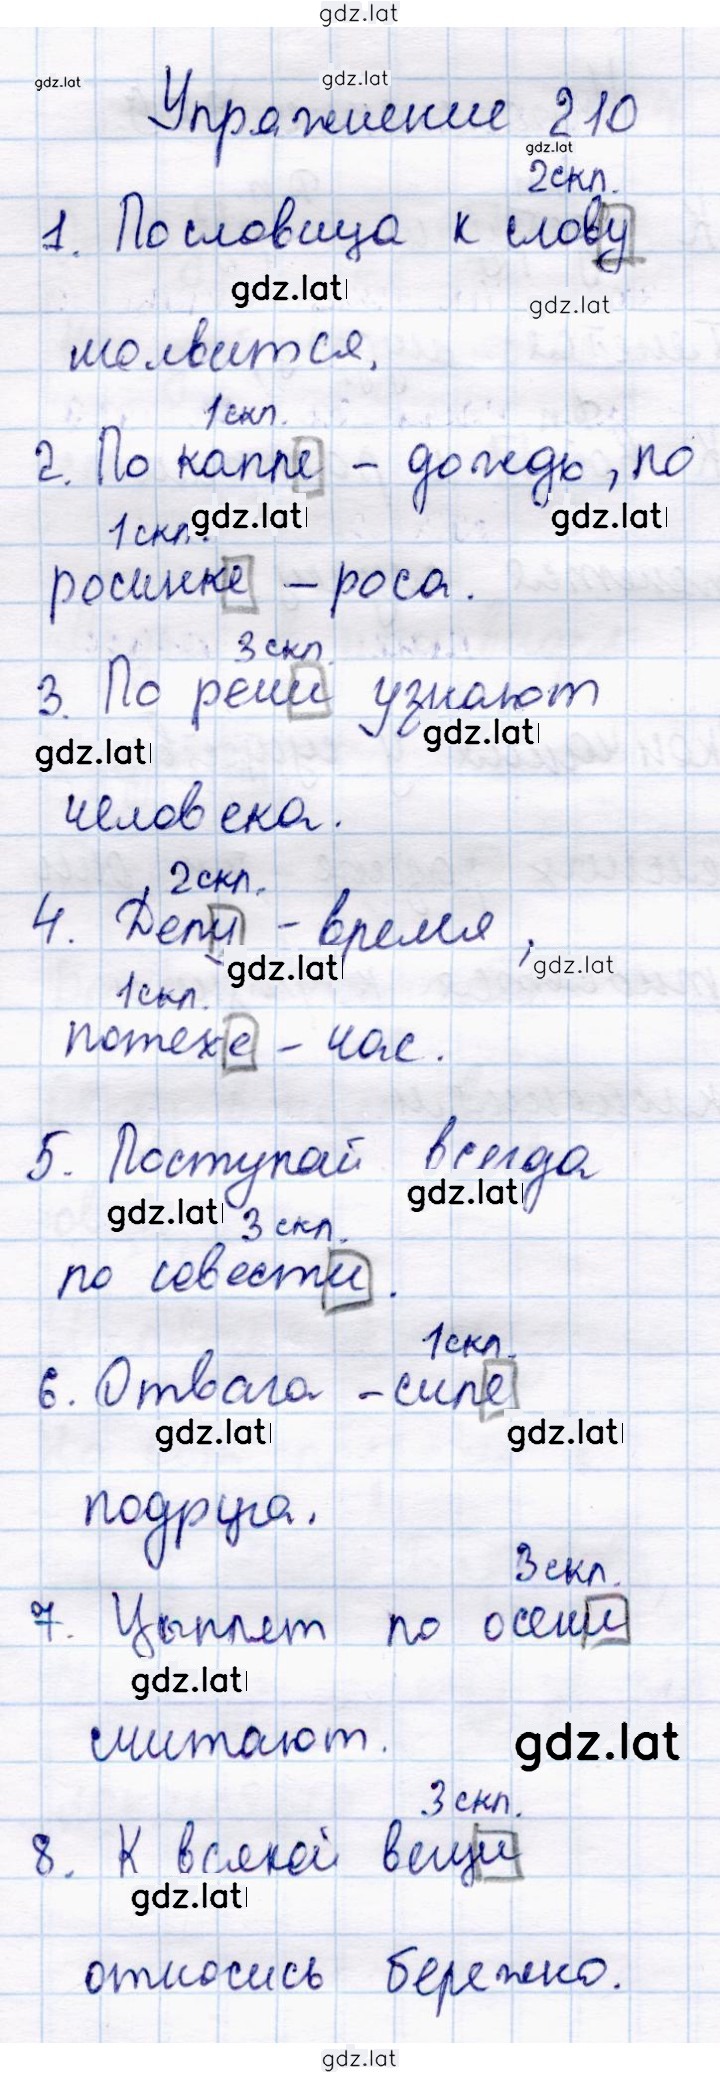 gdz.lat
gdz.lat
gdz.lat
Упражнение 210
gdz.lat
2скл.
1. Пословица к слову
gdz.lat
gdz.lat
молвится.
1скл.
2. По капле – дождь, по
gdz.lat
gdz.lat
1скл.
росинке – роса.
3скл.
3. По речи узнают
gdz.lat
gdz.lat
человека.
2скл.
4. Делу – время,
gdz.lat
gdz.lat
1скл.
потехе – час.
5. Поступай всегда
gdz.lat
gdz.lat
3 скл.
по совести.
1скл.
6. Отвага – силе
gdz.lat
gdz.lat
подруга.
3скл.
7. Цыплят по осени
gdz.lat
считают.
gdz.lat
3скл.
8. К всякой вещи
gdz.lat
относись бережно.
gdz.lat